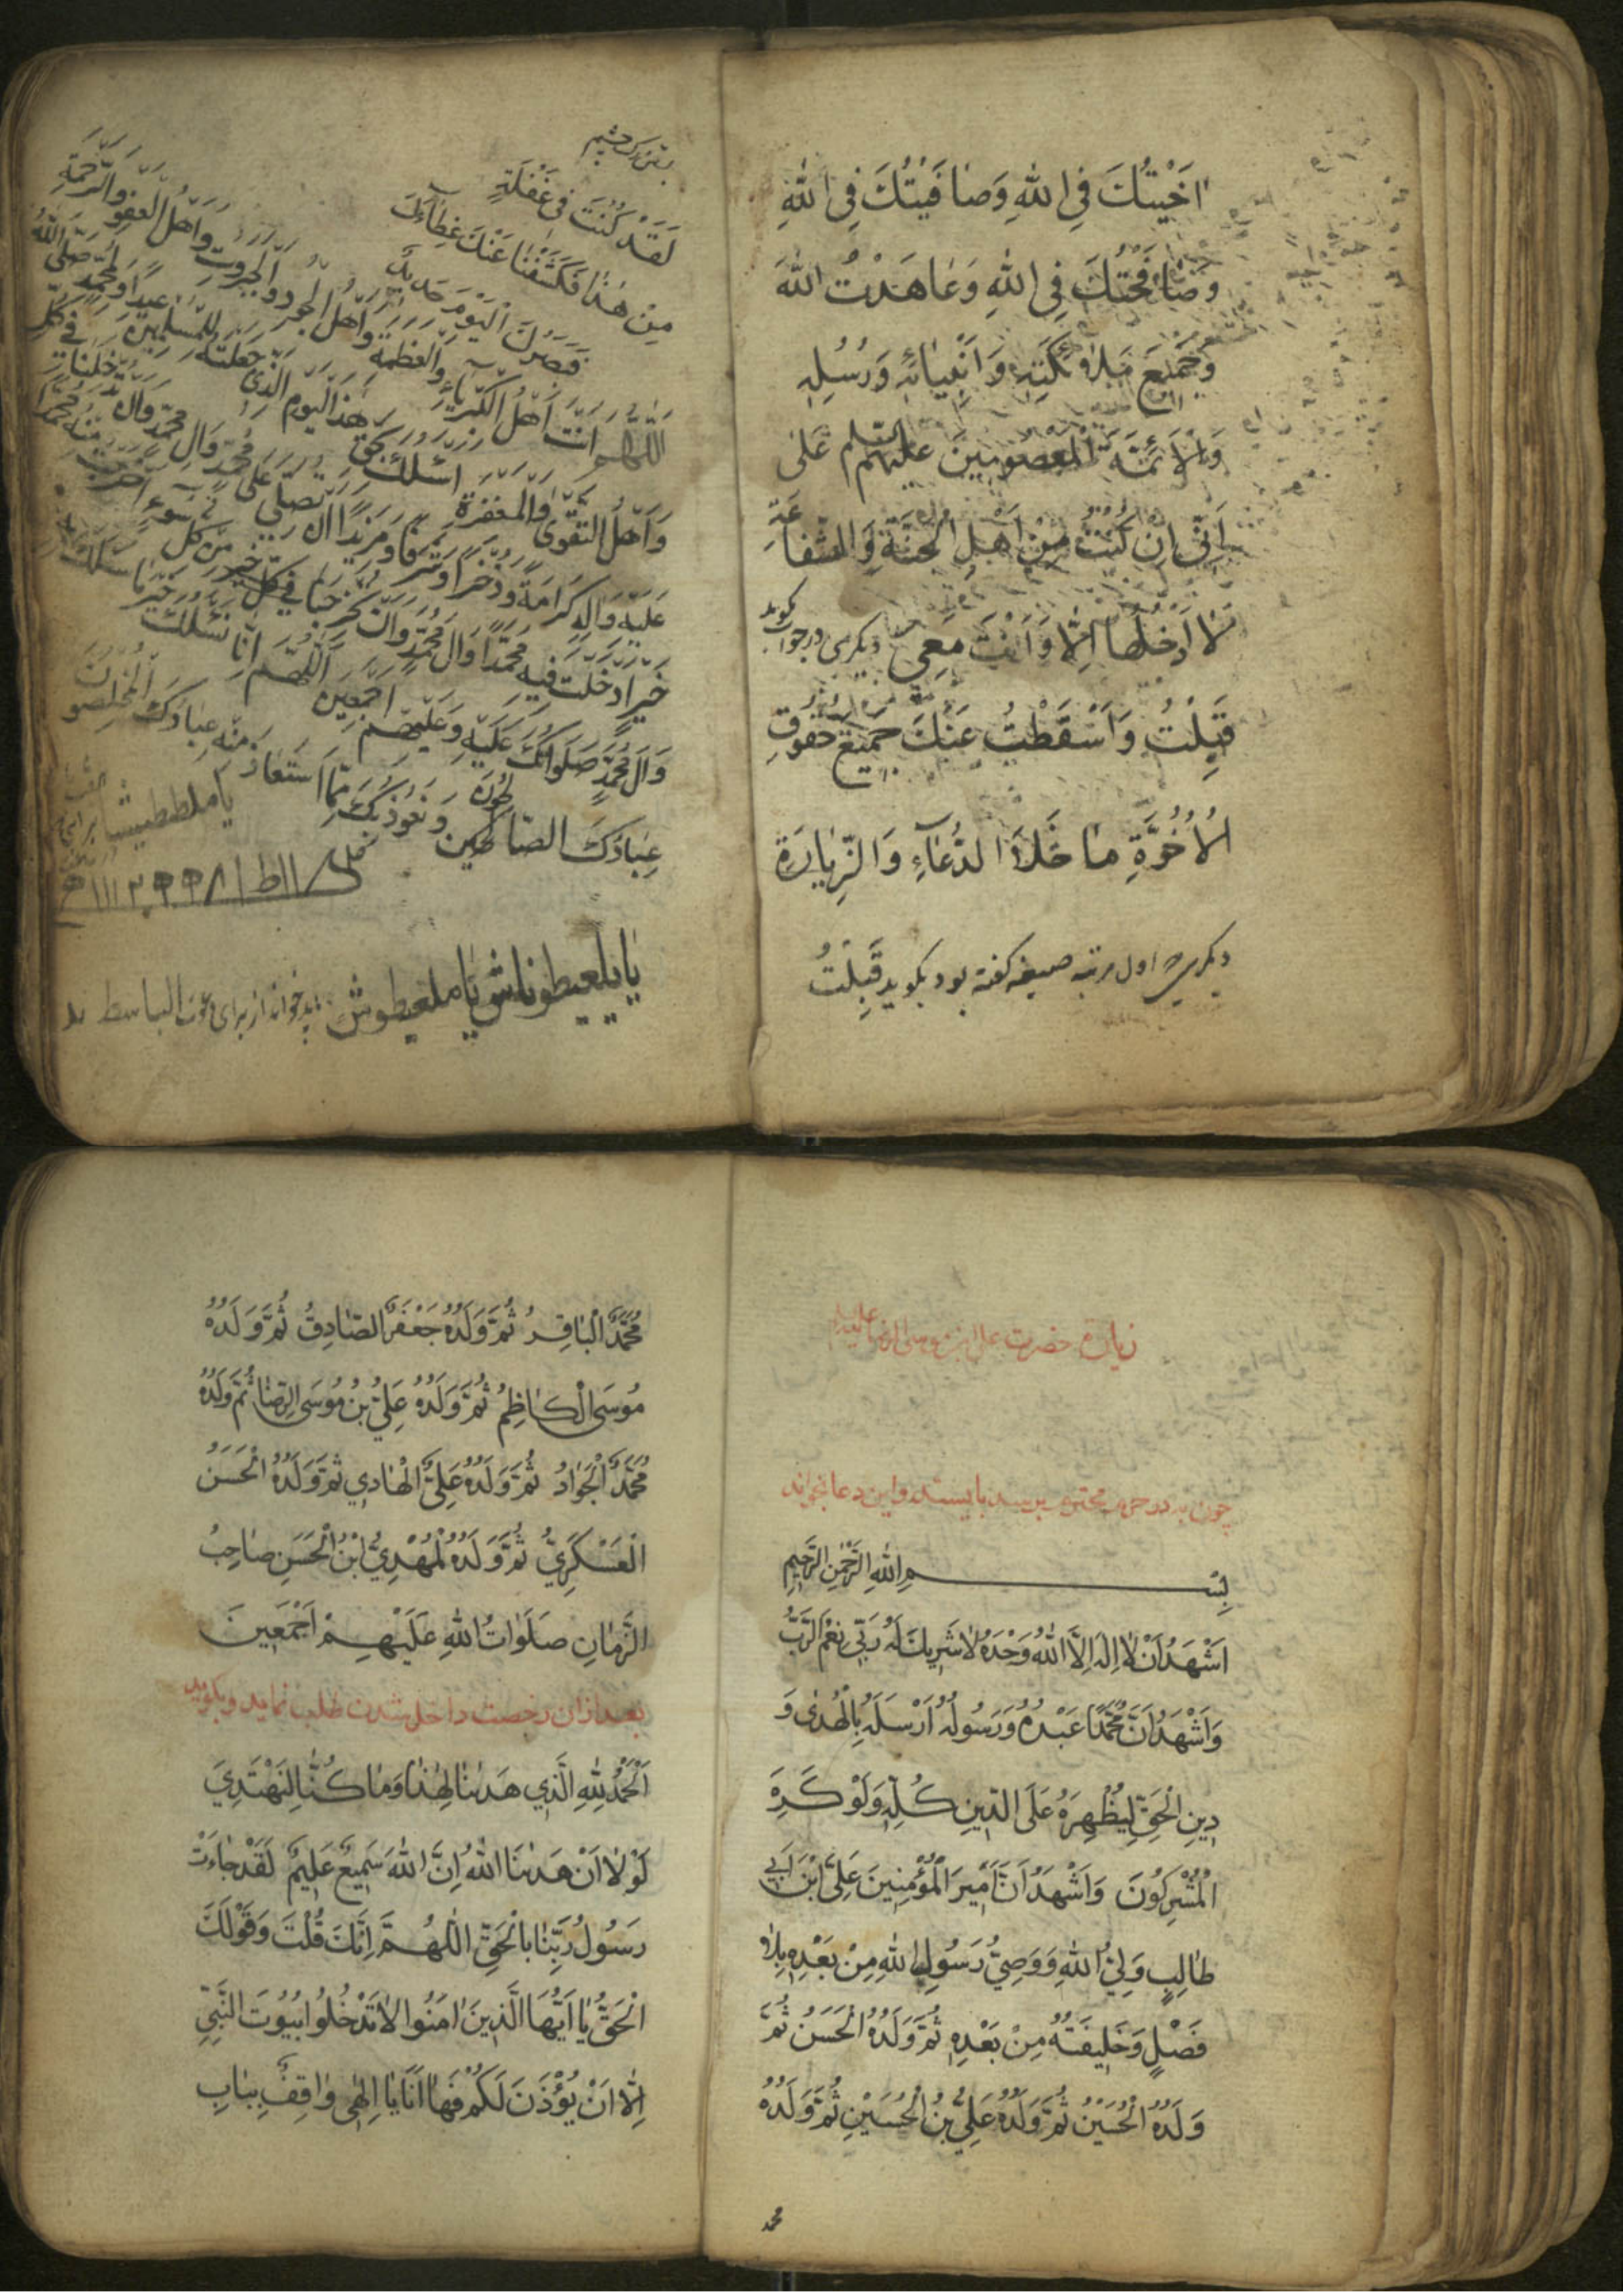 اخَيْتُكَ فِي اللهِ وَصٰافَيْتُكَ فِي اللهِ
وَصٰافَحْتُكَ فِي اللهِ وَعٰاهَدْتُ اللهَ
وَجَمِيْعَ مَلاٰئِكَتِهِ وَاَنْبِيٰائِهِ وَرُسُلِهِ
وَالْاَئِمَّةَ الْمَعْصُومِيْنَ عَلَيْهِمُ السَّلٰمُ عَلٰى
اَنِّي اِنْ كُنْتُ مِنْ اَهْلِ الْجَنَّةِ وَالشَّفٰاعَةِ
لاٰ اَدْخُلُهٰا اِلّٰا وَاَنْتَ مَعِي ديكرى در جواب كويد
قَبِلْتُ وَاَسْقَطْتُ عَنْكَ جَمِيْعَ حُقُوقِ
الْاُخُوَّةِ مٰا خَلاَ الدُّعٰآءِ وَالزِّيٰارَةِ
ديكرى كه اول مرتبه صيغه كفته بود بكويد قَبِلْتُ
لَقَدْ كُنْتَ فِي غَفْلَةٍ
مِنْ هٰذٰا فَكَشَفْنٰا عَنْكَ غِطٰآءَكَ
فَبَصَرُكَ الْيَوْمَ حَدِيدٌ
اَللّٰهُمَّ اَنْتَ اَهْلُ الْكِبْرِيٰآءِ وَالْعَظَمَةِ وَاَهْلُ الْجُودِ وَالْجَبَرُوتِ وَاَهْلُ الْعَفْوِ وَالرَّحْمَةِ
وَاَهْلُ التَّقْوٰى وَالْمَغْفِرَةِ اَسْئَلُكَ بِحَقِّ هٰذَا الْيَوْمِ الَّذِي جَعَلْتَهُ لِلْمُسْلِمِيْنَ عِيْداً وَلِمُحَمَّدٍ صَلَّى اللهُ
عَلَيْهِ وَاٰلِهِ كَرٰامَةً وَذُخْراً وَشَرَفاً وَمَزِيْداً اَنْ تُصَلِّيَ عَلٰى مُحَمَّدٍ وَاٰلِ مُحَمَّدٍ وَاَنْ تُدْخِلَنٰا فِي كُلِّ
خَيْرٍ اَدْخَلْتَ فِيْهِ مُحَمَّداً وَاٰلَ مُحَمَّدٍ وَاَنْ تُخْرِجَنٰا مِنْ كُلِّ سُوٓءٍ اَخْرَجْتَ مِنْهُ مُحَمَّداً
وَاٰلَ مُحَمَّدٍ صَلَوٰاتُكَ عَلَيْهِ وَعَلَيْهِمْ اَجْمَعِيْنَ اَللّٰهُمَّ اِنّٰا نَسْئَلُكَ خَيْرَ مٰا سَئَلَكَ
عِبٰادُكَ الصّٰالِحُونَ وَنَعُوذُ بِكَ مِمَّا اسْتَعٰاذَ مِنْهُ عِبٰادُكَ الْمُخْلِصُونَ
زيارة حضرت على ابن موسى الرضا عليه السلام
چون به در حرم محترم برسد بايستد و اين دعا بخواند
بِسْمِ اللهِ الرَّحْمٰنِ الرَّحِيْمِ
اَشْهَدُ اَنْ لاٰ اِلٰهَ اِلَّا اللهُ وَحْدَهُ لاٰ شَرِيْكَ لَهُ رَبِّي نِعْمَ الرَّبُّ
وَاَشْهَدُ اَنَّ مُحَمَّداً عَبْدُهُ وَرَسُولُهُ اَرْسَلَهُ بِالْهُدٰى وَ
دِيْنِ الْحَقِّ لِيُظْهِرَهُ عَلَى الدِّيْنِ كُلِّهِ وَلَوْ كَرِهَ
الْمُشْرِكُونَ وَاَشْهَدُ اَنَّ اَمِيْرَ الْمُؤْمِنِيْنَ عَلِيَّ ابْنَ اَبِي
طٰالِبٍ وَلِيُّ اللهِ وَوَصِيُّ رَسُولِ اللهِ مِنْ بَعْدِهِ بِلاٰ
فَصْلٍ وَخَلِيْفَتُهُ مِنْ بَعْدِهِ ثُمَّ وَلَدُهُ الْحَسَنُ ثُمَّ
وَلَدُهُ الْحُسَيْنُ ثُمَّ وَلَدُهُ عَلِيُّ بْنُ الْحُسَيْنِ ثُمَّ وَلَدُهُ
محمد
مُحَمَّدٌ الْبٰاقِرُ ثُمَّ وَلَدُهُ جَعْفَرٌ الصّٰادِقُ ثُمَّ وَلَدُهُ
مُوسَى الْكٰاظِمُ ثُمَّ وَلَدُهُ عَلِيُّ بْنُ مُوسَى الرِّضٰا ثُمَّ وَلَدُهُ
مُحَمَّدٌ الْجَوٰادُ ثُمَّ وَلَدُهُ عَلِيٌّ الْهٰادِي ثُمَّ وَلَدُهُ الْحَسَنُ
الْعَسْكَرِيُّ ثُمَّ وَلَدُهُ الْمَهْدِيُّ ابْنُ الْحَسَنِ صٰاحِبُ
الزَّمٰانِ صَلَوٰاتُ اللهِ عَلَيْهِمْ اَجْمَعِيْنَ
بعد از ان رخصت داخل شدن طلب نمايد و بكويد
اَلْحَمْدُ لِلّٰهِ الَّذِي هَدٰنٰا لِهٰذٰا وَمٰا كُنّٰا لِنَهْتَدِيَ
لَوْلاٰ اَنْ هَدٰنَا اللهُ اِنَّ اللهَ سَمِيْعٌ عَلِيْمٌ لَقَدْ جٰاءَتْ
رَسُولُ رَبِّنٰا بِالْحَقِّ اَللّٰهُمَّ اِنَّكَ قُلْتَ وَقَوْلُكَ
الْحَقُّ يٰا اَيُّهَا الَّذِيْنَ اٰمَنُوا لاٰ تَدْخُلُوا بُيُوتَ النَّبِيِّ
اِلّٰا اَنْ يُؤْذَنَ لَكُمْ فَهٰا اَنَا يٰا اِلٰهِي وٰاقِفٌ بِبٰابِ